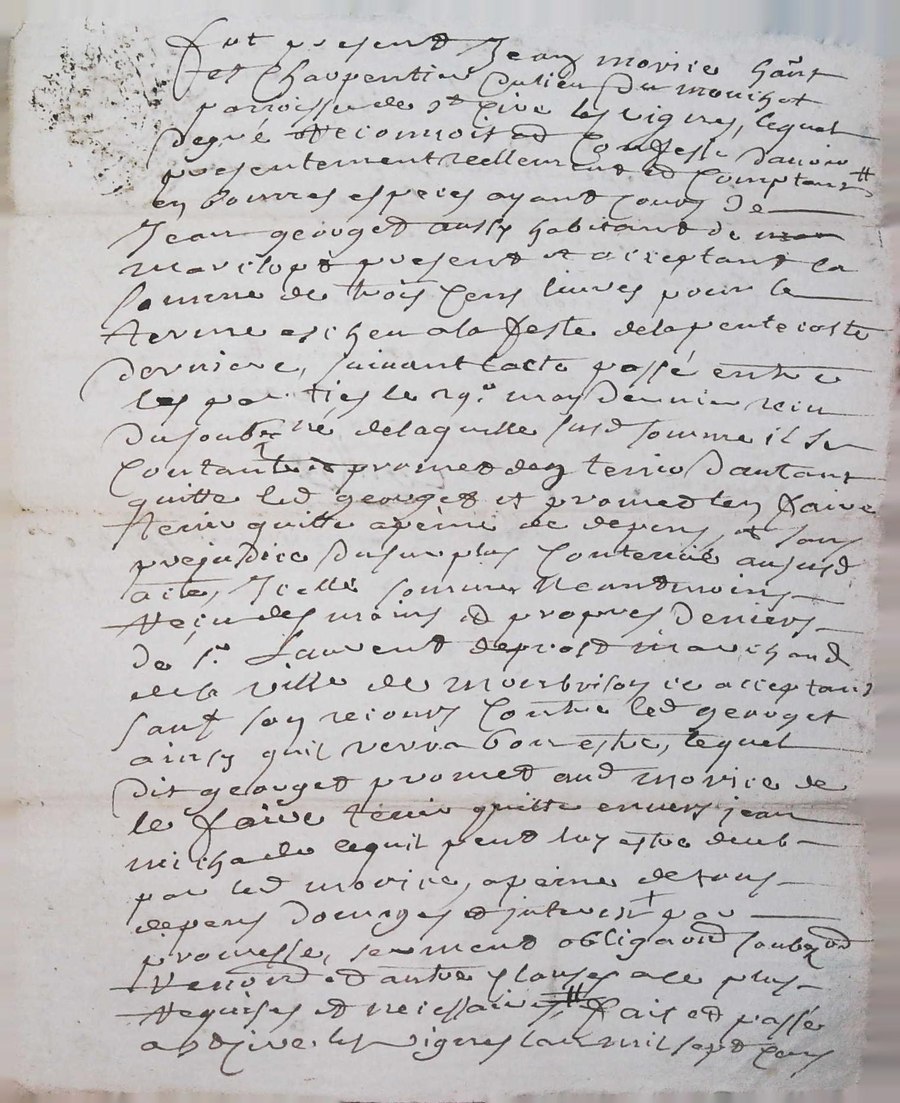 fut present Jean morice hânt
et Charpentier du lieu du mouchot
parroisse de st Cire les vignes, lequel
de gré Reconnoit et Confesse d'avoir
presentement reellement et comptant
en bonnes especes ayant cours De
Jean georget aussy habitant de
marclopt present et acceptant la
somme de trois cens livres pour le
terme escheu a la feste de la pentecoste
derniere, suivant l'acte passé entre
les parties le 29e may dernier receu
du soubne de laquelle susd somme il se
contante promet den tenir d'autant
quitte led georget et promet len faire
tenir quitte a peine de depens, et sans
prejudice du surplus contenue aususd
acte, Icelle somme Neantmoins
Reçu des mains et propres deniers
de sr Laurent deprost marchand
de la ville de montbrison ce acceptant
sauf son recours contre led georget
ainsy quil verra bon estre, lequel
dit georget promet aud morice de
le faire tenir quitte envers jean
michard ce quil peut luy estre deub
par led morice, a peine de tous
depens domges et interest + par
promesse, serment obligaon soubzon
Renonon et autre clauses a ce plus
Requises et necessaires # fait et passé
a st Cire les Vignes l'an mil sept cens